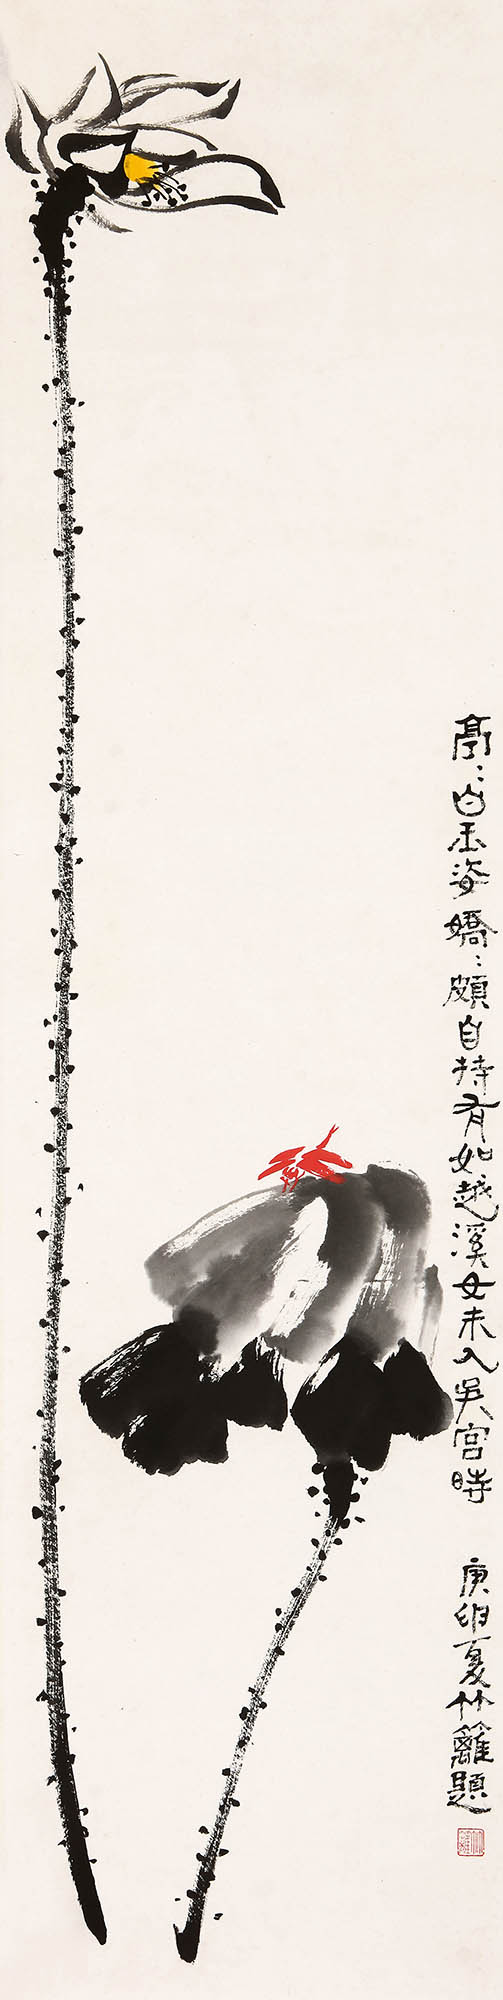 亭：白玉姿嬌：頗自持有如越溪女未入吳宮時
庚夏竹籬題